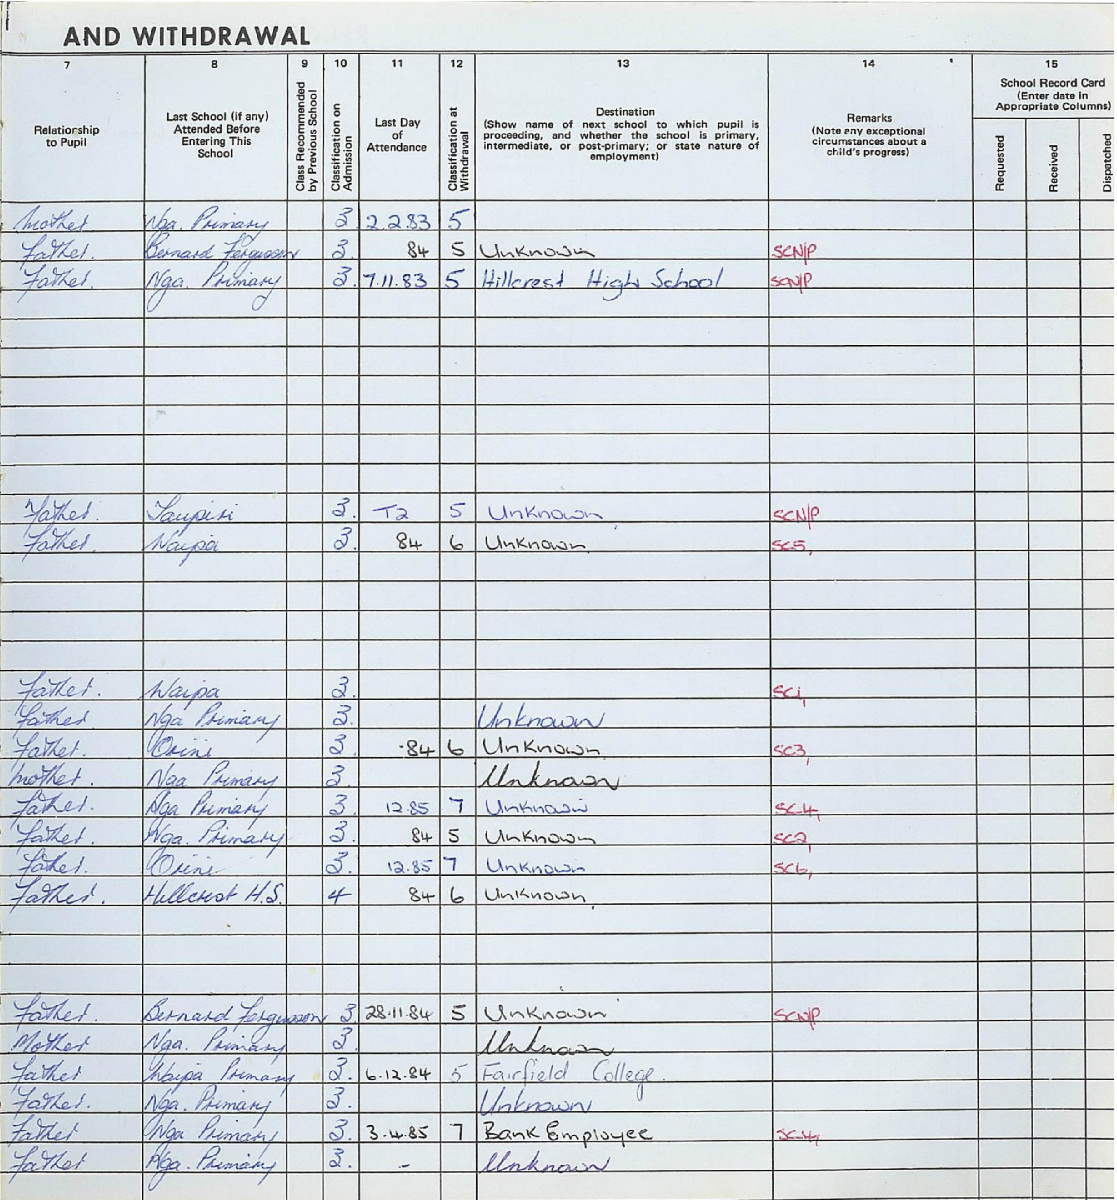 AND WITHDRAWAL
7 8 9 10 11 12 13 14 15
Relationship to Pupil
Last School (if any) Attended Before Entering This School
Class Recommended by Previous School
Classification on Admission
Last Day of Attendance
Classification at Withdrawal
Destination (Show name of next school to which pupil is proceeding, and whether the school is primary, intermediate, or post-primary; or state nature of employment)
Remarks (Note any exceptional circumstances about a child's progress)
School Record Card (Enter date in Appropriate Columns)
Requested Received Dispatched
Mother Nga. Primary 3 2.2.83 5
Father. Bernard Fergusson 3. 84 5 Unknown SCN/P
Father. Nga. Primary 3. 7.11.83 5 Hillcrest High School SCN/P
Father. Taupiri 3. T2 5 Unknown SCN/P
Father. Waipa 3. 84 6 Unknown. SC5,
Father. Waipa 3. SC1,
Father Nga Primary 3. Unknown
Father. Orini 3. .84 6 Unknown SC3,
Mother. Nga Primary 3. Unknown
Father. Nga Primary 3. 12.85 7 Unknown SC4,
Father. Nga. Primary 3. 84 5 Unknown SC2,
Father. Orini 3. 12.85 7 Unknown SC6,
Father. Hillcrest H.S. 4 84 6 Unknown.
Father. Bernard Fergusson 3 28.11.84 5 Unknown SCN/P
Mother Nga. Primary 3. Unknown
Father Waipa Primary 3. 6.12.84 5 Fairfield College.
Father. Nga. Primary 3. Unknown
Father Nga Primary 3. 3.4.85 7 Bank Employee SC4,
Father Nga. Primary 3. - Unknown